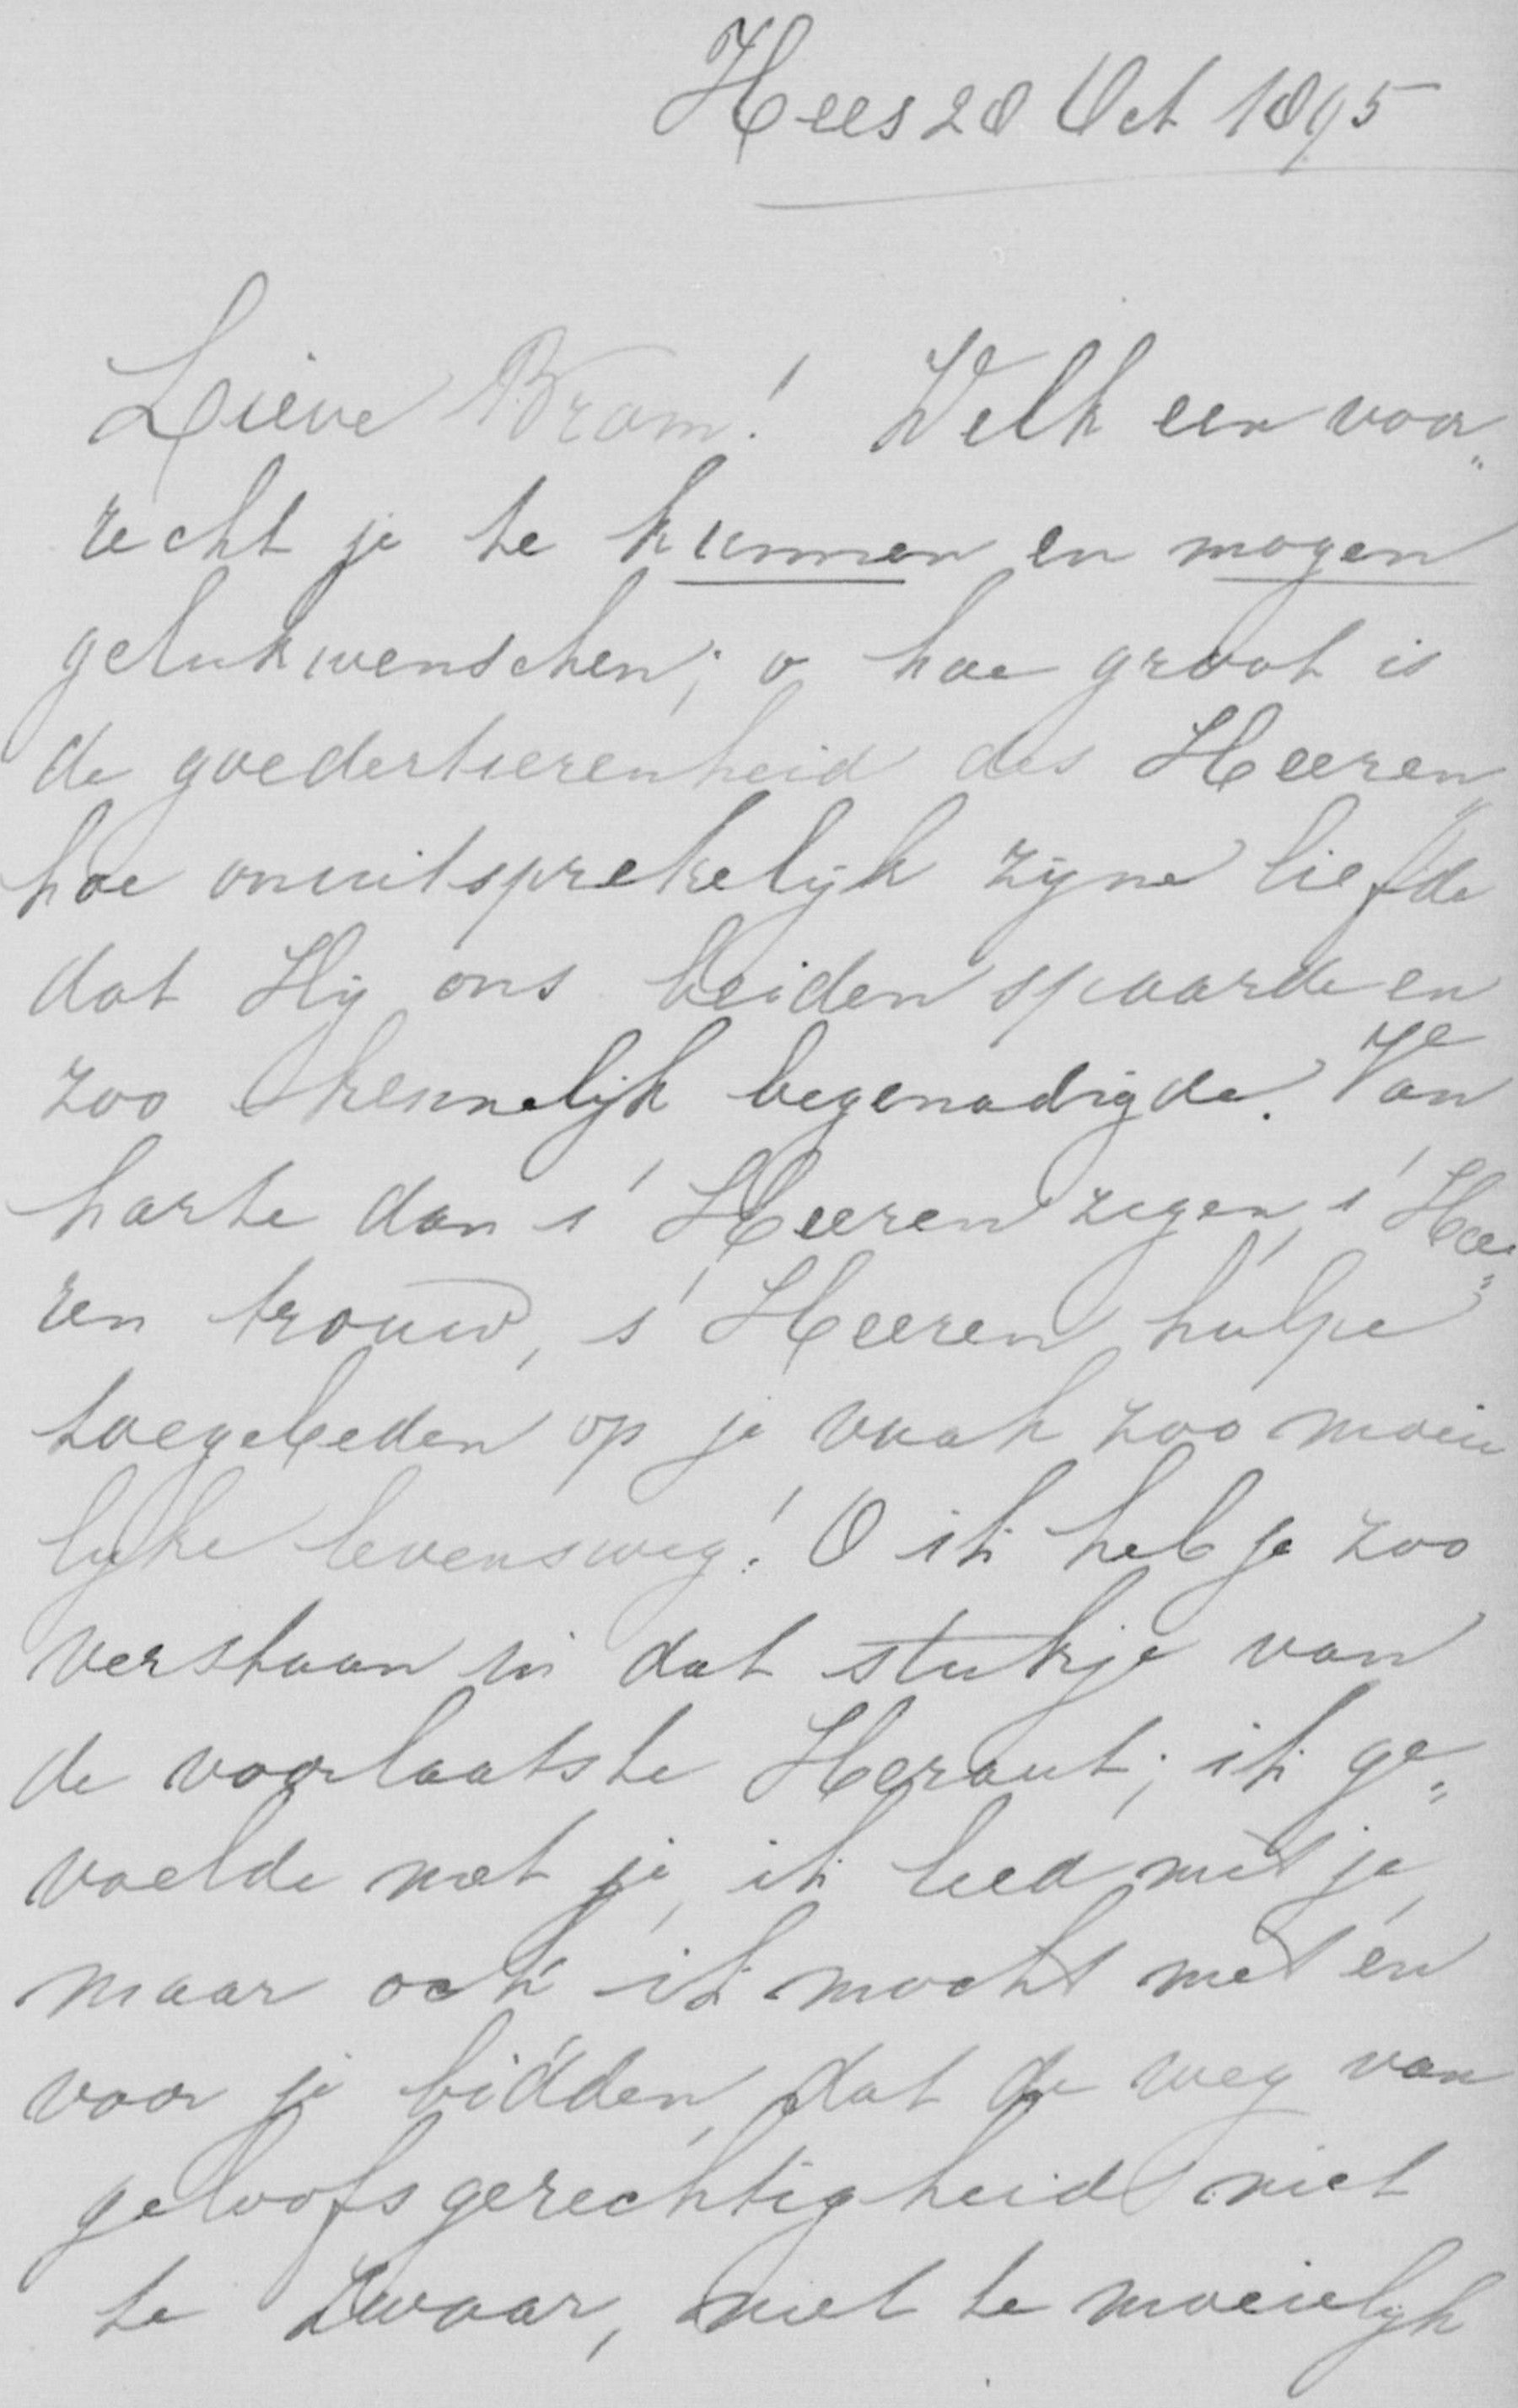 Hees 28 Oct 1895
Lieve Bram! Welk een voor„
recht je te kunnen en mogen
gelukwenschen; o hoe groot is
de goedertierenheid des Heeren,
hoe onuitsprekelijk zijne liefde
dat Hij ons beiden spaarde en
zoo kennelijk begenadigde. Van
harte dan s' Heeren zegen, s' Hee„
ren trouw, s' Heeren hulpe
toegebeden op je vaak zoo moeie
lijke levensweg! O ik heb je zoo
verstaan in dat stukje van
de voorlaatste Heraut; ik ge„
voelde met je, ik leed met je,
maar ook ik mocht met én
voor je bidden, dat de weg van
geloofsgerechtigheid niet
te zwaar, niet te moeielijk